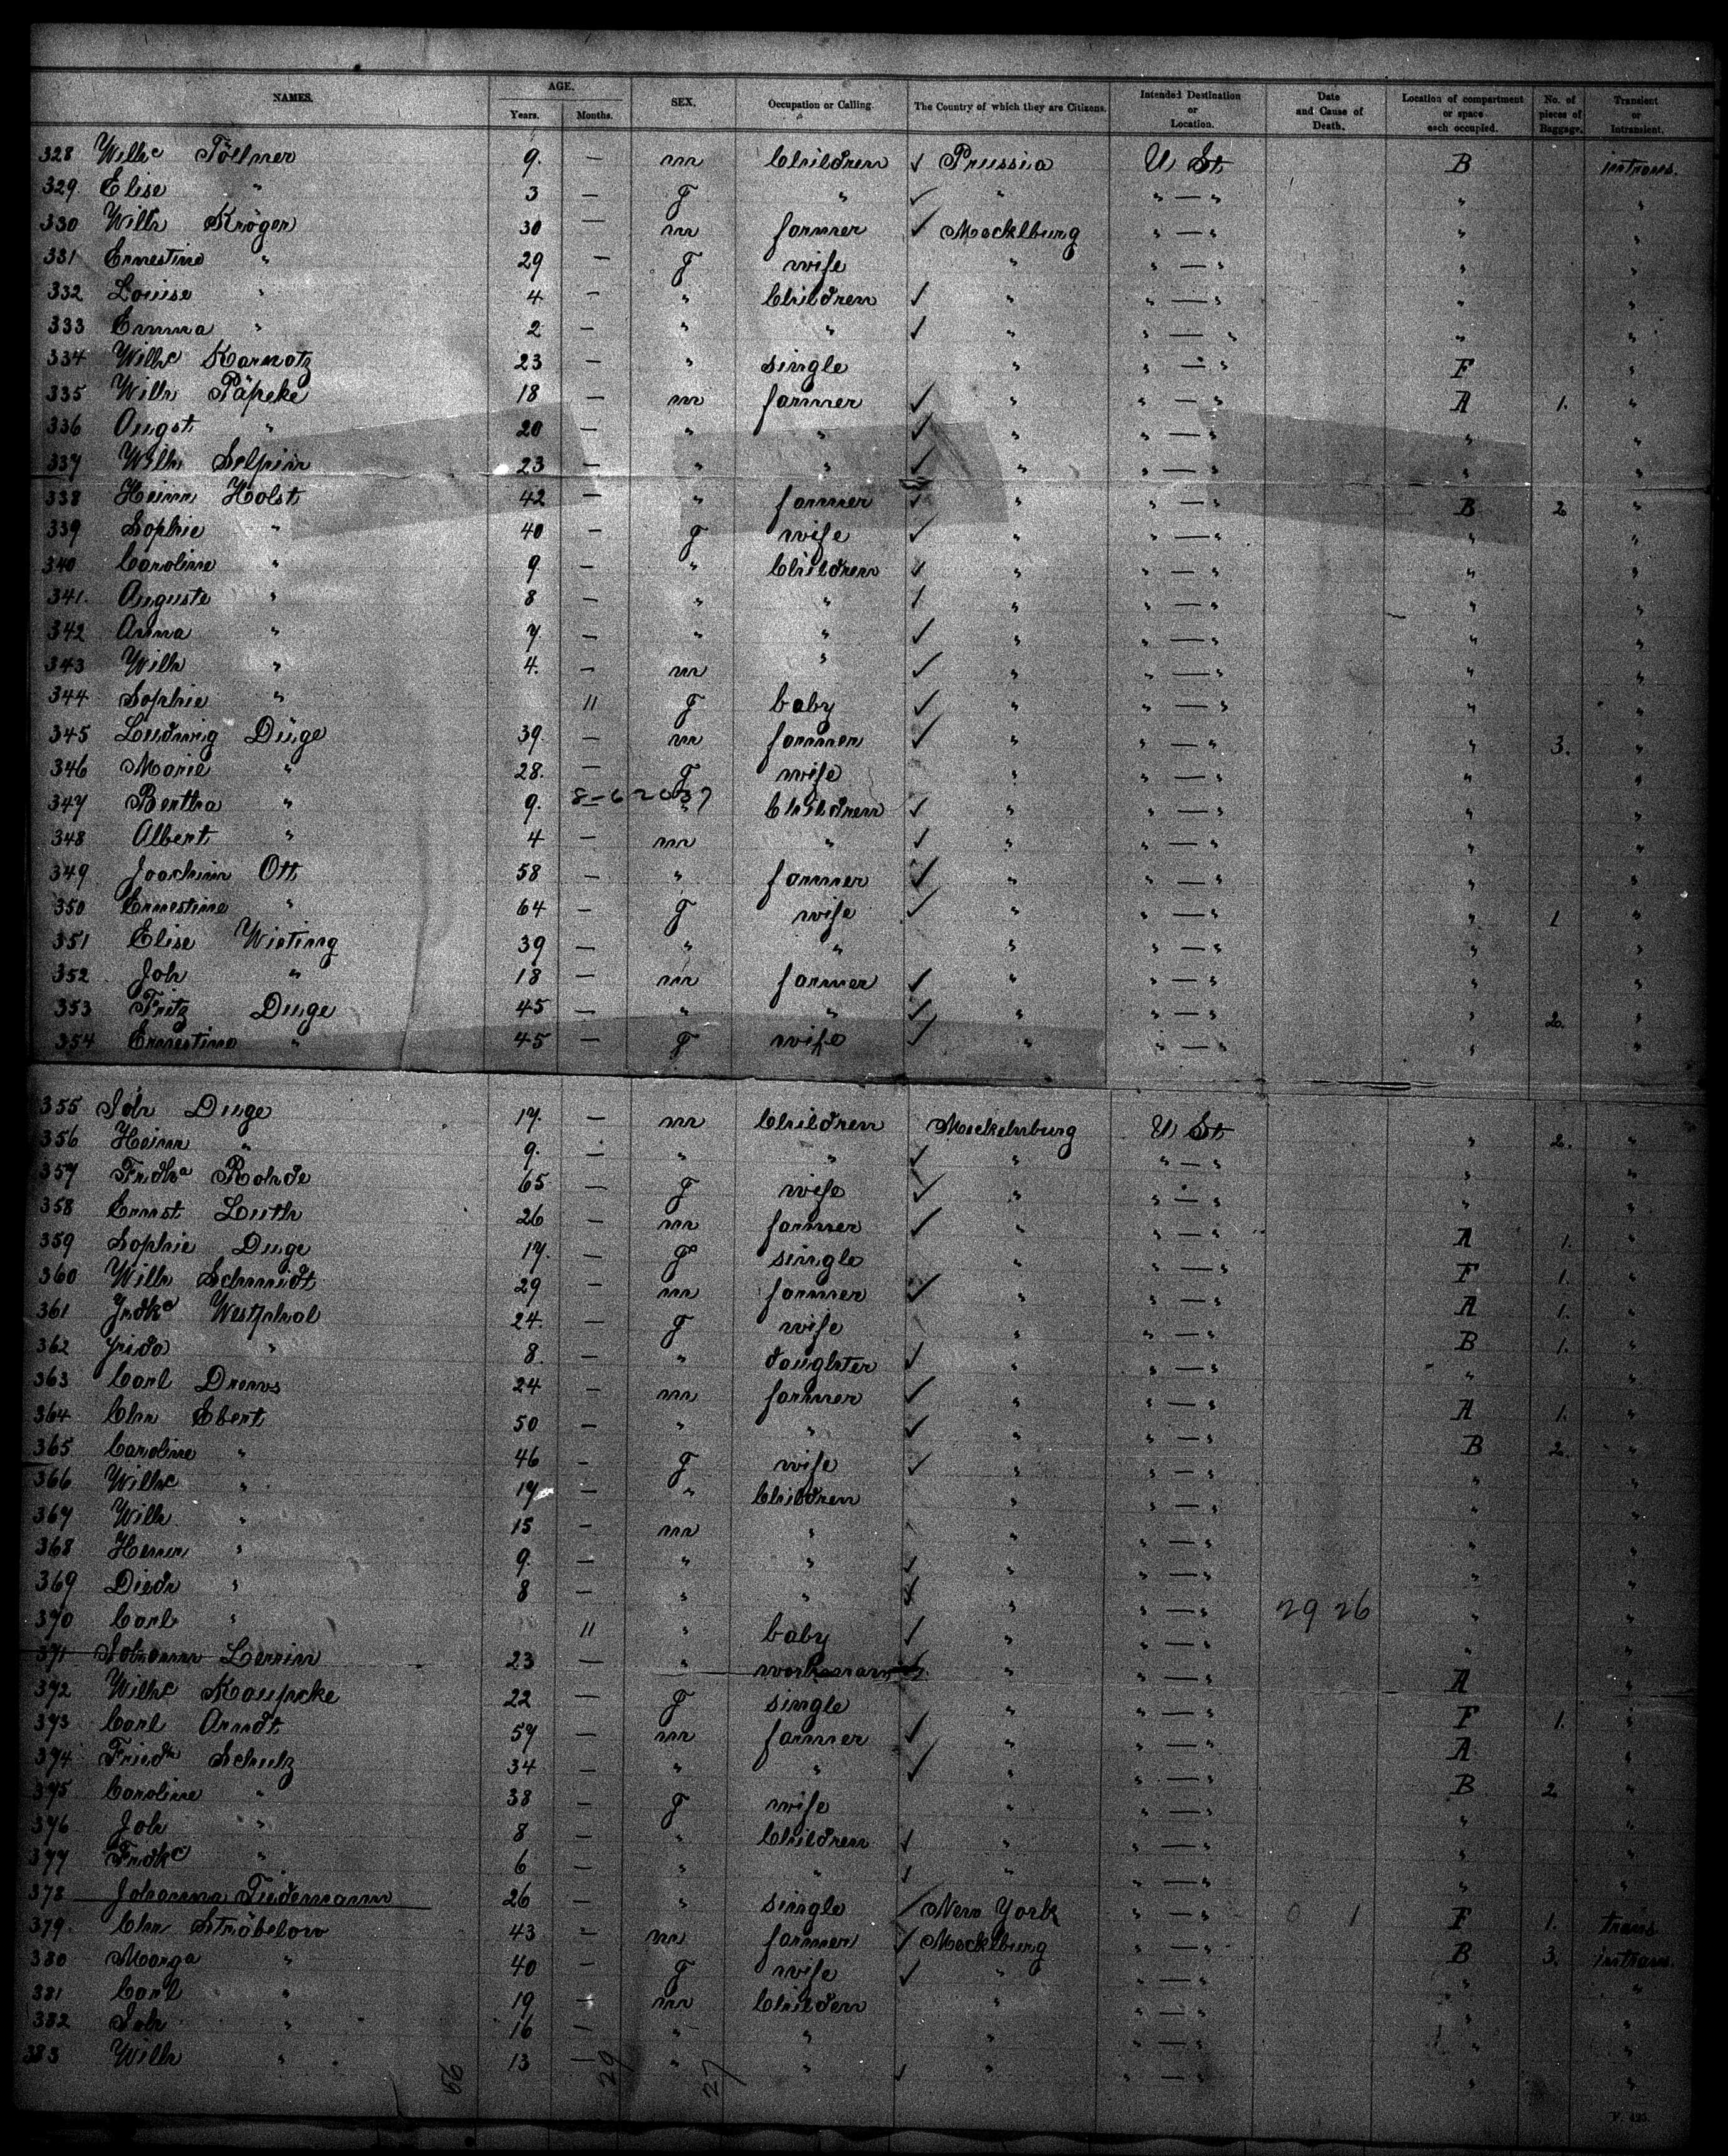 NAMES. AGE. Years. Months. SEX. Occupation or Calling. The Country of which they are Citizens. Intended Destination or Location. Date and Cause of Death. Location of compartment or space each occupied. No. of pieces of Baggage. Transient or Intransient.
328 Wilhe Töllner 9. — m Children ✓ Prussia U St B intrans.
329 Elise " 3 — g " ✓ " " — " " "
330 Wilh Kröger 30 — m farmer ✓ Mecklburg " — " " "
331 Ernestine " 29 — g wife " " — " " "
332 Louise " 4 — " Children ✓ " " — " " "
333 Emma " 2 — " " ✓ " " — " " "
334 Wilhe Karnatz 23 — " single " " — " F "
335 Wilh Päpcke 18 — m farmer ✓ " " — " A 1. "
336 Augst " 20 — " " ✓ " " — " " "
337 Wilh Selpin 23 — " " ✓ " " — " " "
338 Heinr Holst 42 — " farmer ✓ " " — " B 2 "
339 Sophie " 40 — g wife ✓ " " — " " "
340 Caroline " 9 — " Children ✓ " " — " " "
341. Auguste " 8 — " " ✓ " " — " " "
342 Anna " 7. — " " ✓ " " — " " "
343 Wilh " 4. — m " ✓ " " — " " "
344 Sophie " 11 g baby ✓ " " — " " "
345 Ludwig Düge 39. — m farmer ✓ " " — " " 3. "
346 Marie " 28. — g wife " " — " " "
347 Bertha " 9. — " Children ✓ " " — " " "
348 Albert " 4 — m " ✓ " " — " " "
349 Joachim Ott 58 — " farmer ✓ " " — " " "
350 Ernestine " 64 — g wife ✓ " " — " " 1 "
351 Elise Wieting 39 — " " " " — " " "
352 Joh " 18 — m farmer ✓ " " — " " "
353 Fritz Duge 45 — " " ✓ " " — " " 2. "
354 Ernestine " 45 — g wife ✓ " " — " " "
355 Joh Duge 17. — m Children Meckelnburg U St " 2. "
356 Heinr " 9. — " " ✓ " " — " " "
357 Fredka Rohde 65 — g wife ✓ " " — " " "
358 Ernst Luth 26 — m farmer ✓ " " — " A 1. "
359 Sophie Duge 17. — g single " " — " F 1. "
360 Wilh Schmidt 29 — m farmer ✓ " " — " A 1. "
361 Fredke Westphal 24. — g wife " " — " B 1. "
362 Frida " 8. — " daughter ✓ " " — " " "
363 Carl Drews 24 — m farmer ✓ " " — " A 1. "
364 Chr Ebert 50 — " " ✓ " " — " B 2. "
365 Caroline " 46 — g wife ✓ " " — " " "
366 Wilhe " 17 — " Children " " — " " "
367 Wilh " 15 — m " " " — " " "
368 Herm " 9. — " " ✓ " " — " " "
369 Diedr " 8 — " " ✓ " " — " 29 26 " "
370 Carl " 11 " baby ✓ " " — " " "
371 Johann Lerrin 23 — " workman ✓ " " — " A "
372 Wilhe Kaupcke 22 — g single " " — " F 1. "
373 Carl Arndt 57 — m farmer ✓ " " — " A "
374 Friedh Schulz 34 — " " ✓ " " — " B 2 "
375 Caroline " 38 — g wife " " — " " "
376 Joh " 8 — " Children ✓ " " — " " "
377 Fredke " 6 — " " ✓ " " — " " "
378 Johanna Tiedemann 26 — " single ✓ New York " — " 0 1 F 1. trans
379. Chr Ströbelow 43 — m farmer ✓ Mecklburg " — " B 3. intrans.
380 Marga " 40 — g wife ✓ " " — " " "
381 Carl " 19 — m Childern " " — " " "
382 Joh " 16 — " " " " — " " "
383 Wilh " 13 — " " ✓ " " — " " "
56 29 27